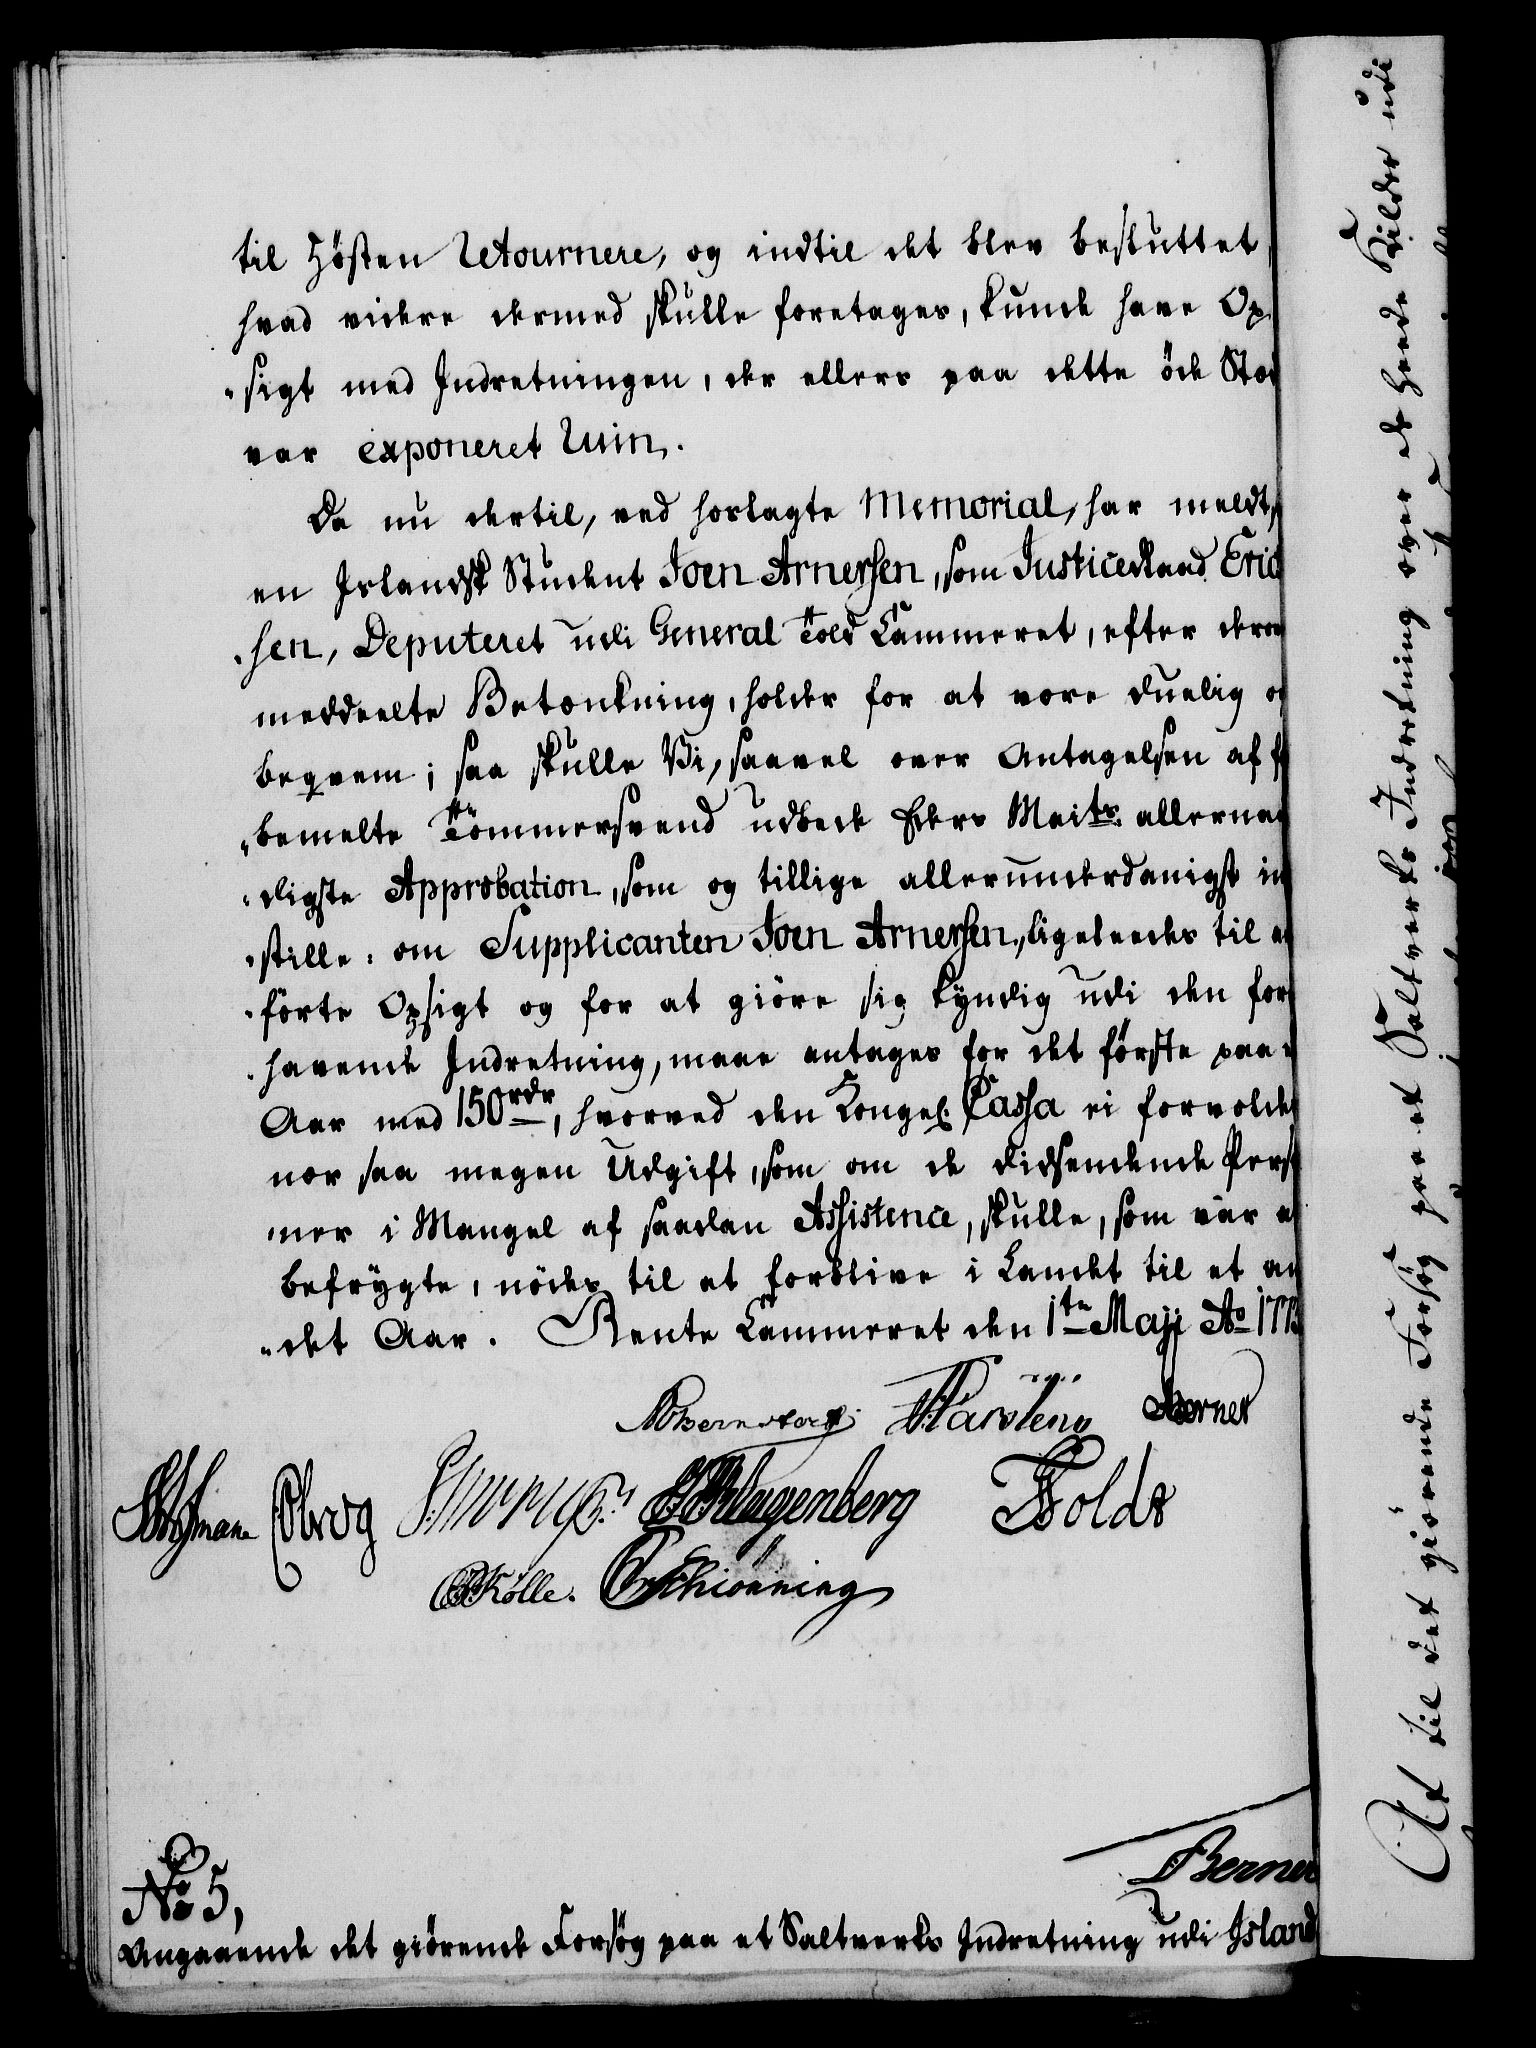 til Høsten Retournere, og indtil det blev besluttet,
hvad videre dermed skulle foretages, kunde have Op-
-sigt med Indretningen, der ellers paa dette öde Sted
var exponeret Ruin.
Da nu dertil, ved hoslagte Memorial, har meldt
en Islandsk Student Joen Arnersen, som Justiceraad Eric
-sen, Deputeret udi General Told Cammeret, efter derom
meddeelte Betænkning, holder for at være duelig og
beqvem; saa skulle Vi, saavel over Antagelsen af
-bemelte Tömmersvend udbede Eders Maits. allernaa-
-digste Approbation, som og tillige allerunderdanigst in
-stille: om Supplicanten Joen Arnersen, ligeledes til
-förte Opsigt og for at giöre sig kyndig udi den for
-havende Indretning, maae antages for det første paa
Aar med 150 rdr, hvorved den Kongel. Cassa ei forvoldes
nær saa megen Udgift, som om de didsendende Perso
-ner i Mangel af saadan Assistence, skulle, som var at
befrygte, nödes til at forblive i Landet til et an
-det Aar. Rente Cammeret den 1te Maji Ao 1773
Bernstorff. Karstens Berner
Hofmane Obrog J. Wagenberg Holds
Kölle. Schiønning
Berner
No 5,
Angaaende det giörende Forsøg paa et Saltverks Indretning udi Island
At til det giörende Forsøg paa et Saltverks Indretning over de heede Kilder udi